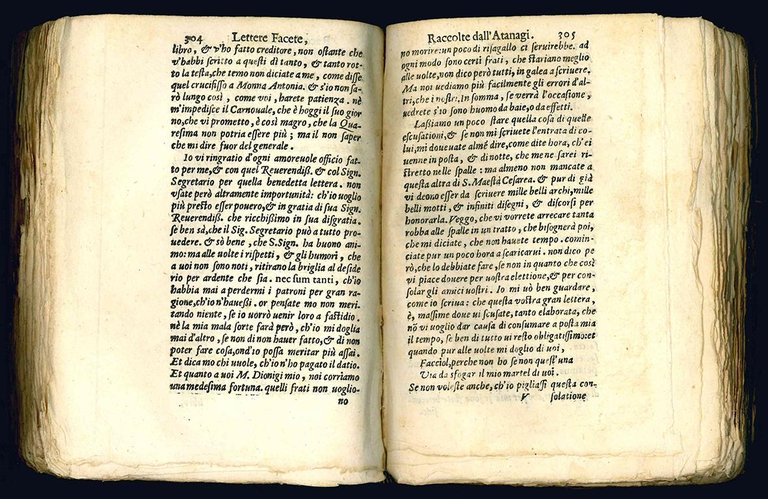 304 Lettere Facete,
libro, & v'ho fatto creditore, non ostante che
v'habbi scritto a questi dì tanto, & tanto rot-
to la testa, che temo non diciate a me, come disse
quel crucifisso a Monna Antonia. & s'io non sa-
rò lungo così, come voi, harete patienza. nè
m'impedisce il Carnouale, che è hoggi il suo gior
no, che vi prometto, è così magro, che la Qua-
resima non potria essere più; ma il non saper
che mi dire fuor del generale.
Io vi ringratio d'ogni amoreuole officio fat-
to per me, & con quel Reuerendiß. & col Sign.
Segretario per quella benedetta lettera. non
vsate però altramente importunità: ch'io uoglio
più presto esser pouero, & in gratia di sua Sign.
Reuerendiß. che ricchissimo in sua disgratia.
se ben sà, che il Sig. Segretario può a tutto pro-
uedere. & sò bene, che S. Sign. ha buono ani-
mo: ma alle uolte i rispetti, & gli humori, che
a uoi non sono noti, ritirano la briglia al deside
rio per ardente che sia. nec sum tanti, ch'io
habbia mai a perdermi i patroni per gran ra-
gione, ch'io n'hauessi. or pensate mo non meri-
tando niente, se io uorrò uenir loro a fastidio.
nè la mia mala sorte farà però, ch'io mi doglia
mai d'altro, se non di non hauer fatto, & di non
poter fare cosa, ond'io possa meritar più assai.
Et dica mo chi uuole, ch'io n'ho pagato il datio.
Et quanto a uoi M. Dionigi mio, noi corriamo
una medesima fortuna. quelli frati non uoglio-
no
Raccolte dall'Atanagi. 305
no morire: un poco di risagallo ci seruirebbe. ad
ogni modo sono certi frati, che stariano meglio
alle uolte, non dico però tutti, in galea a scriuere.
Ma noi uediamo più facilmente gli errori d'al-
tri, che i nostri. In somma, se verrà l'occasione,
uedrete s'io sono huomo da baie, o da effetti.
Lasciamo un poco stare quella cosa di quelle
escusationi, & se non mi scriuete l'entrata di co-
lui, mi doueuate almē dire, come dite hora, ch'ei
venne in posta, & di notte, che me ne sarei ri-
stretto nelle spalle: ma almeno non mancate a
questa altra di S. Maestà Cesarea. & pur di già
vi deono esser da scriuere mille belli archi, mille
belli motti, & infiniti disegni, & discorsi per
honorarla. Veggo, che vi vorrete arrecare tanta
robba alle spalle in un tratto, che bisognerà poi,
che mi diciate, che non hauete tempo. comin-
ciate pur un poco a scaricarui. non dico pe
rò, che lo debbiate fare, se non in quanto che così
vi piace douere per uostra elettione, & per con-
solar gli amici uostri. Io mi uò ben guardare,
come io scriua: che questa vostra gran lettera,
è, massime doue ui scusate, tanto elaborata, che
nō vi uoglio dar causa di consumare a posta mia
il tempo, se ben di tutto vi resto obligatissimo: et
quando pur alle uolte mi doglio di uoi,
Facciol, perche non ho se non quest'una
Via da sfogar il mio martel di uoi.
Se non voleste anche, ch'io pigliassi questa con-
V solatione